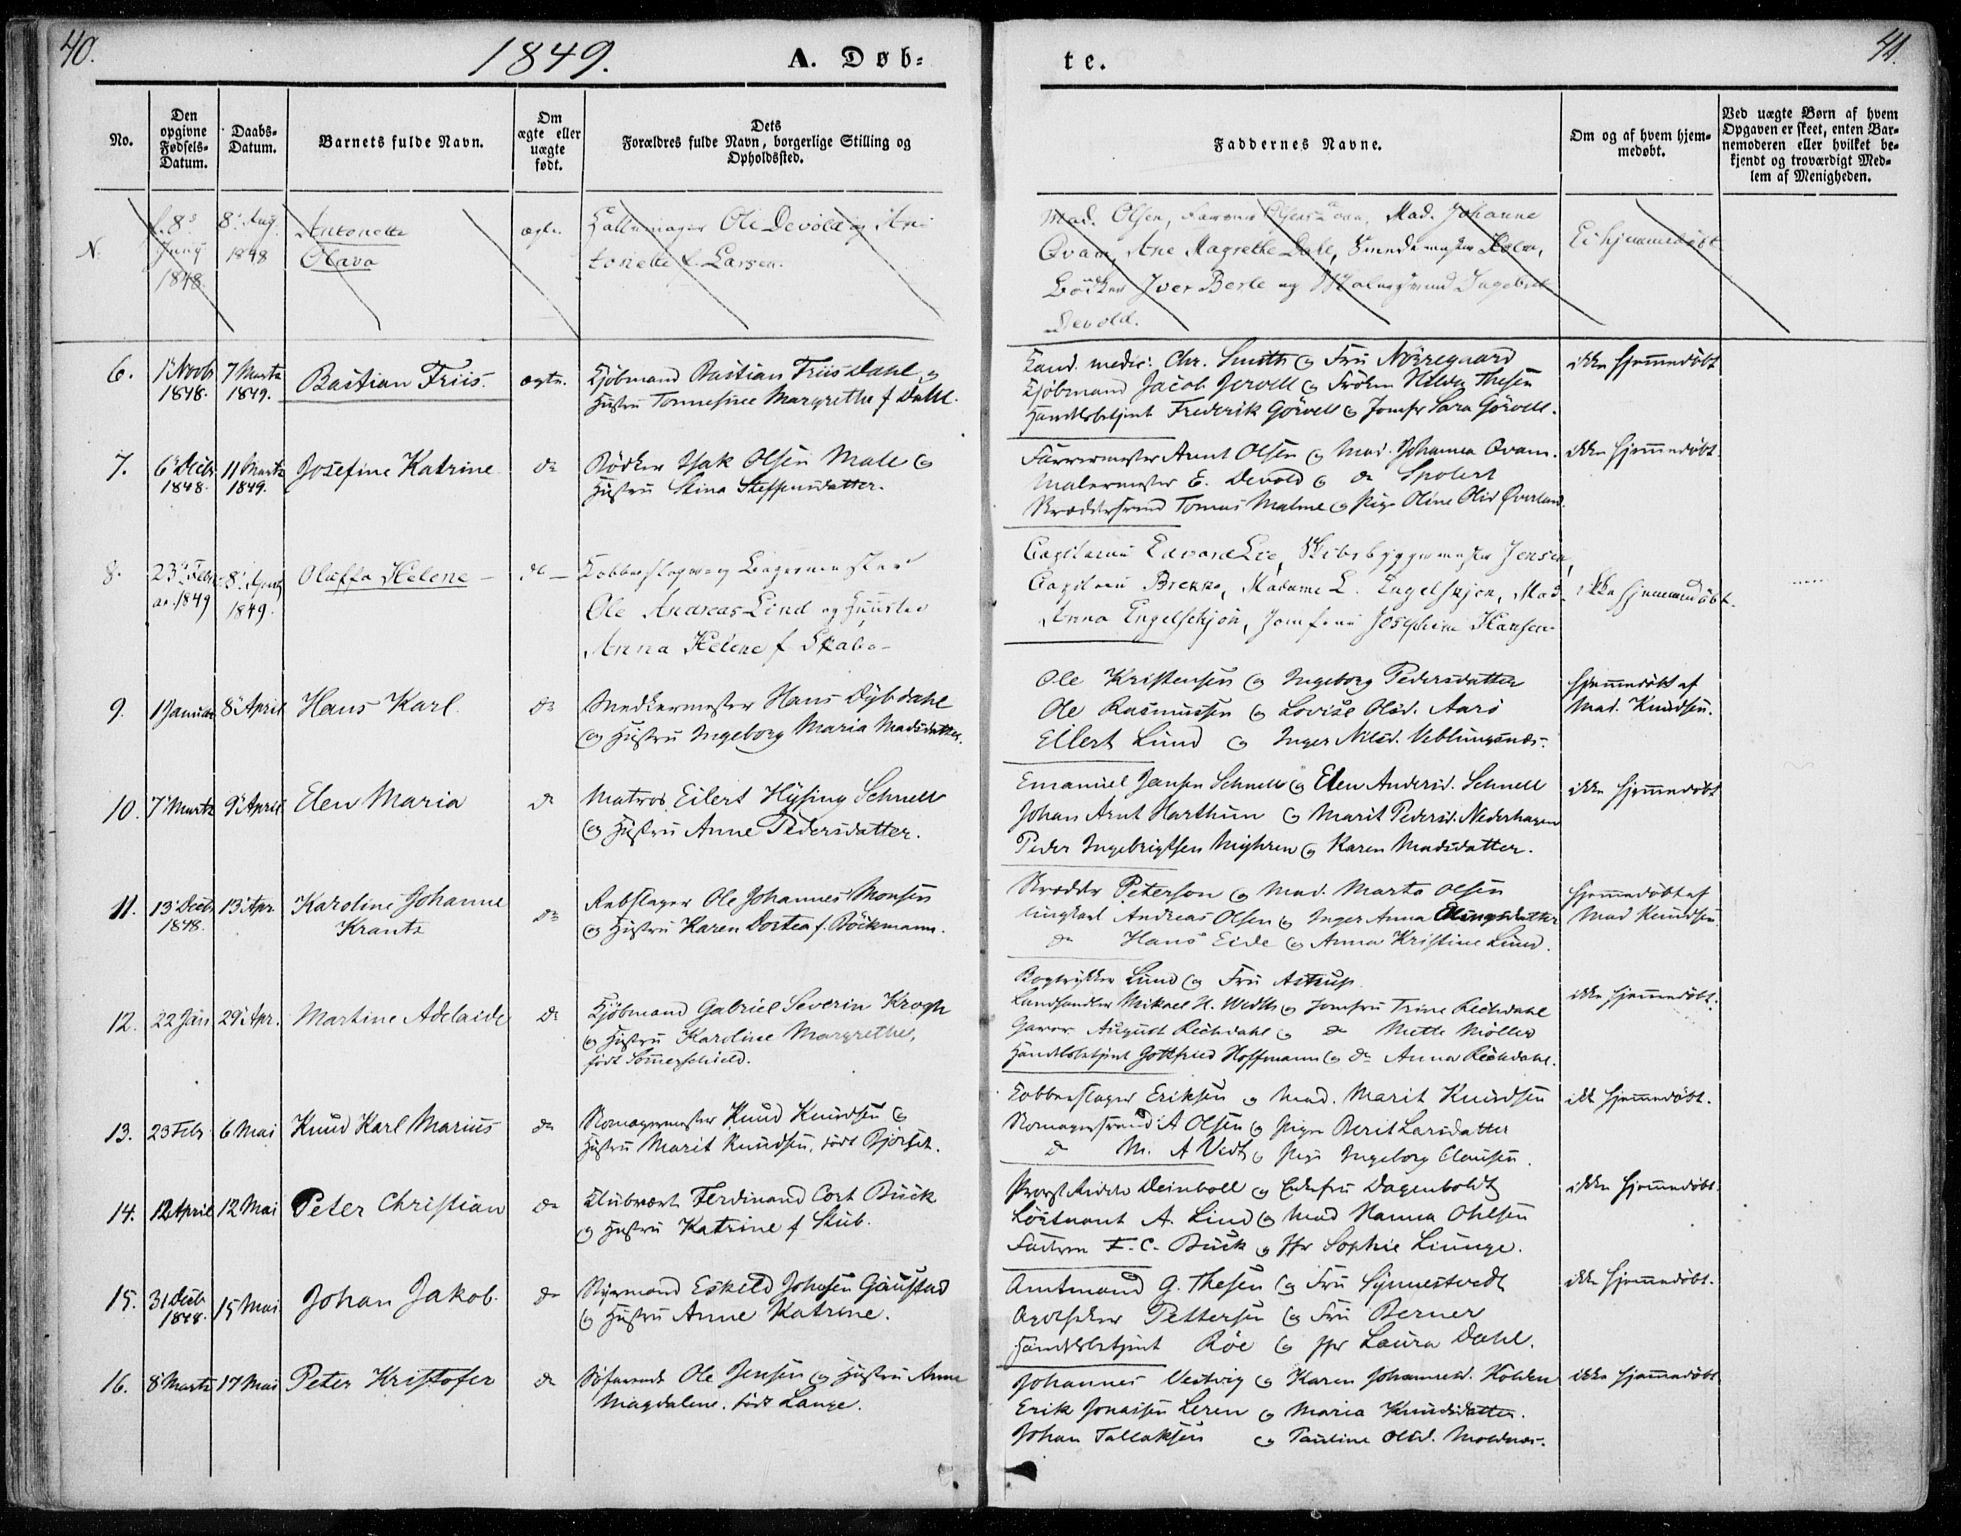 40.
1849.
A. Døb-
No.
Den opgivne Fødsels-Datum.
Daabs-Datum.
Barnets fulde Navn.
Om ægte eller uægte født.
Dets Forældres fulde Navn, borgerlige Stilling og Opholdssted.
N.
f. 8de Juny 1848
8de Aug. 1848
Antonette Olava
ægte
Ole Devold og An-
tonette f. Larsen.
6.
1 Novb 1848.
7 Marts 1849.
Bastian Friis.
ægte.
Kjøbmand Bastian Friis Dahl og
Hustru Margrethe f Dahl.
7.
6 Decbr 1848.
11 Marts 1849.
Josefine Katrine
do
Bødker Isak Olsen Male og
Hustru Stina Steffensdatter.
8.
23de Febru-
ar. 1849
8de April 1849.
Oluffa Helene
do
Kobberslager og
Ole Andreas Lind og Hustru
Anna Helene f Skabo
9.
1 Januar
8 April
Hans Karl.
do
Snedkermester Hans Dybdahl
og Hustru Ingeborg Maria Madsdatter.
10.
7 Marts
9 April
Elen Maria
do
Matros Eilert Hysing Schnell
og Hustru Anne Pedersdatter.
11.
13 Decbr 1848.
13 Apr.
Karoline Johanne
Krantz
do
Rebslager Ole Johannes Monsen
og Hustru Karen Dortea f. Böckmann.
12.
22 Jan
29 Apr.
Martine Adelaide
do
Kjøbmand Gabriel Severin Krogh
og Hustru Karoline Margrethe,
født Sommerschield.
13.
23 Febr
6 Mai
Knud Karl Marius
do
Skomagermester Knud Knudsen og
Hustru Marit Knudsen, født Bjørset.
14.
12 April
12 Mai
Peter Christian
do
Klubvært Ferdinand Cort Buck
og Hustru Katrine f Stub.
15.
31 Decb 1848.
15 Mai
Johan Jakob.
do
Styrmand Eskild Johnsen Gaustad
og Hustru Anne Katrine.
16.
8 Marts
17 Mai
Peter Kristofer
do
Søfarende Ole Jensen og Hustru Anne
Magdalene, født Lange.
te.
41.
Faddernes Navne.
Om og af hvem hjem-
medøbt.
Ved uægte Børn af hvem
Opgaven er skeet, enten Bar-
nemoderen eller hvilket be-
kjendt og troværdigt Med-
lem af Menigheden.
Mad. Olsen, Mad. Johanne
Qvam, Ane Magrethe Dahl, Smedemester
Bødker Iver Berle og Malersvend Ingebret
Devold.
Ei hjemmedøbt
Kand. medic. Chr. Smith og Fru Nörregaard
Kjøbmand Jacob Jervell og Frøken Hilda Thesen
Handelsbetjent Frederik Görvell og Jomfr Sara Görvell.
ikke hjemmedøbt
Farvermester Arnt Olsen og Mad. Johanna Qvam.
Malermester E. Devold og do Spolert
Skræddersvend Tomas Malme og Pige Oline Olsd Øverland.
ikke hjemmedøbt
Capitain Edvard Lie, Skibsbyggermester Jensen,
Capitain Brekke, Madame L. Engelskjøn, Mad.
Anna Engelschjøn, Jomfru Josephine Hansen
ikke hjemmedøbt.
Ole Kristensen og Ingeborg Pedersdatter
Ole Rasmussen og Lovise Olsd. Aarö
Eilert Lund og Inger Nilsd. Veblungsnæs.
hjemmedöbt af
Mad. Knudsen.
Emanuel Jansen Schnell og Elen Andersd. Schnell
Johan Arnt Harthun og Marit Pedersd. Nederhagen
Peder Ingebrigtsen og Karen Madsdatter.
ikke hjemmedøbt
Skrædder Peterson og Mad. Marta Olsen
Ungkarl Andreas Olsen og Inger Anna Ellingsdatter
do Hans Eide og Anna Kristine Lund.
hjemmedøbt af
Mad Knudsen
Bogtrykker Lund og Fru Astrup
Landhandler Mikael H. og Jomfru Trine Rechdahl
Garver August Rechdahl og do Mette Møller
Handelsbetjent Gottfried Hoffmann og do Anna Rechdahl.
ikke hjemmedøbt.
Kobberslager Eriksen og Mad. Marit Knudsen
Skomagersvend A Olsen og Pige Berit Larsdatter
do M. A Vedt og Pige Ingeborg Clausen.
ikke hjemmedøbt.
Provst Deinboll og Dagenboldt
Løitnant A. Lind og Mad Hanna Ohlsen
Faderen F. C. Buck og Jfr Sophie Liunge.
ikke hjemmedøbt.
Amtmand G. Thesen og Fru Synnestvedt
Apotheker Pettersen og Fru Berner
Handelsbetjent Röe og Jfr Laura Dahl.
ikke hjemmedøbt.
Johannes Vestvig og Karen Johannesd. Holden
Erik Jonassen Leren og Maria Knudsdatter.
Johan Tallaksen og Pauline Olsd. Moldnæs.
ikke hjemmedøbt